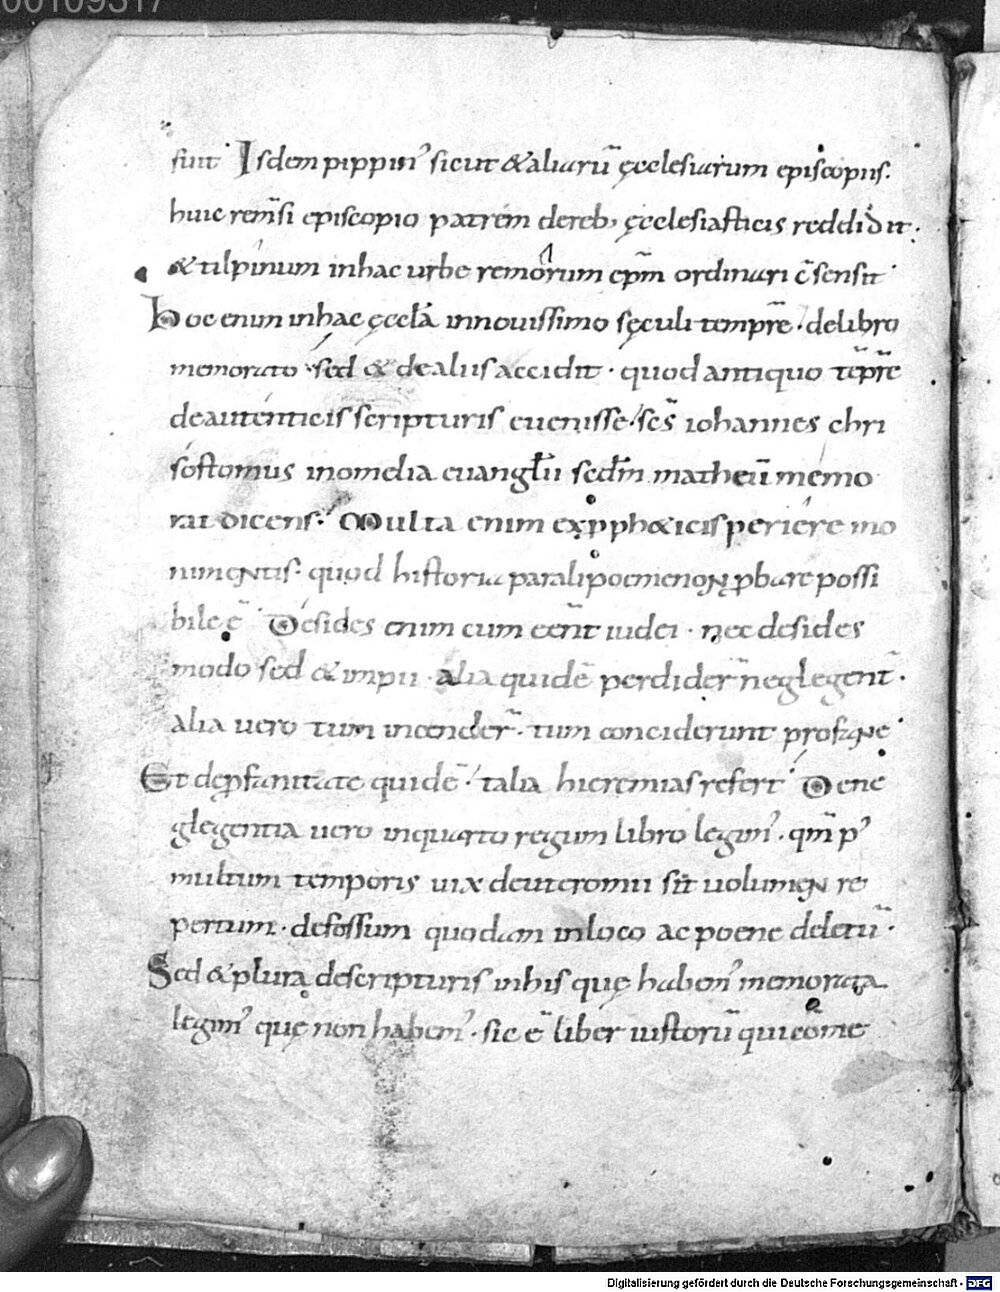 00109317
sunt· Isdem pippin᾽ sicut &aliarū ęcclesiarum episcopiis.
huic rem̄si episcopio patrem dereb; ęcclesiasticis reddidit.
&tilpinum inhac urbe remorum ep̄m ordinari c̄sensit·
Hoc enim inhac ęccl̄a innouissimo sęculi temp̄re· delibro
memorato· sed & dealiis accidit· quod antiquo tēp̄re
deautenticis scripturis euenisse· sc̄s iohannes chri
sostomus inomelia euangl̄ii sed̄m matheū memo
rat dicens· Multa enim exp̱ph&icis periere mo
nimentis· quod historia paralipoemenon ꝓbare possi
bile ē· Desides enim cum eēnt iudei· nec desides
modo sed & impii· alia quidē perdider̄ neglegent̄·
alia uero tum incender̄· tum conciderunt profane·
Et deꝓfanitate quidē· talia hieremias refert· Dene
glegentia uero inquarto regum libro legim᾽· qm̄ p᾽
multum temporis uix deuteromii sit uolumen re
pertum· defossum quodam inloco ac poene deletū·
Sed &plura descripturis inhis quę habem᾽ memorata
legim᾽ quę non habem᾽· sic ē liber iustorū quicōme
Digitalisierung gefördert durch die Deutsche Forschungsgemeinschaft - DFG